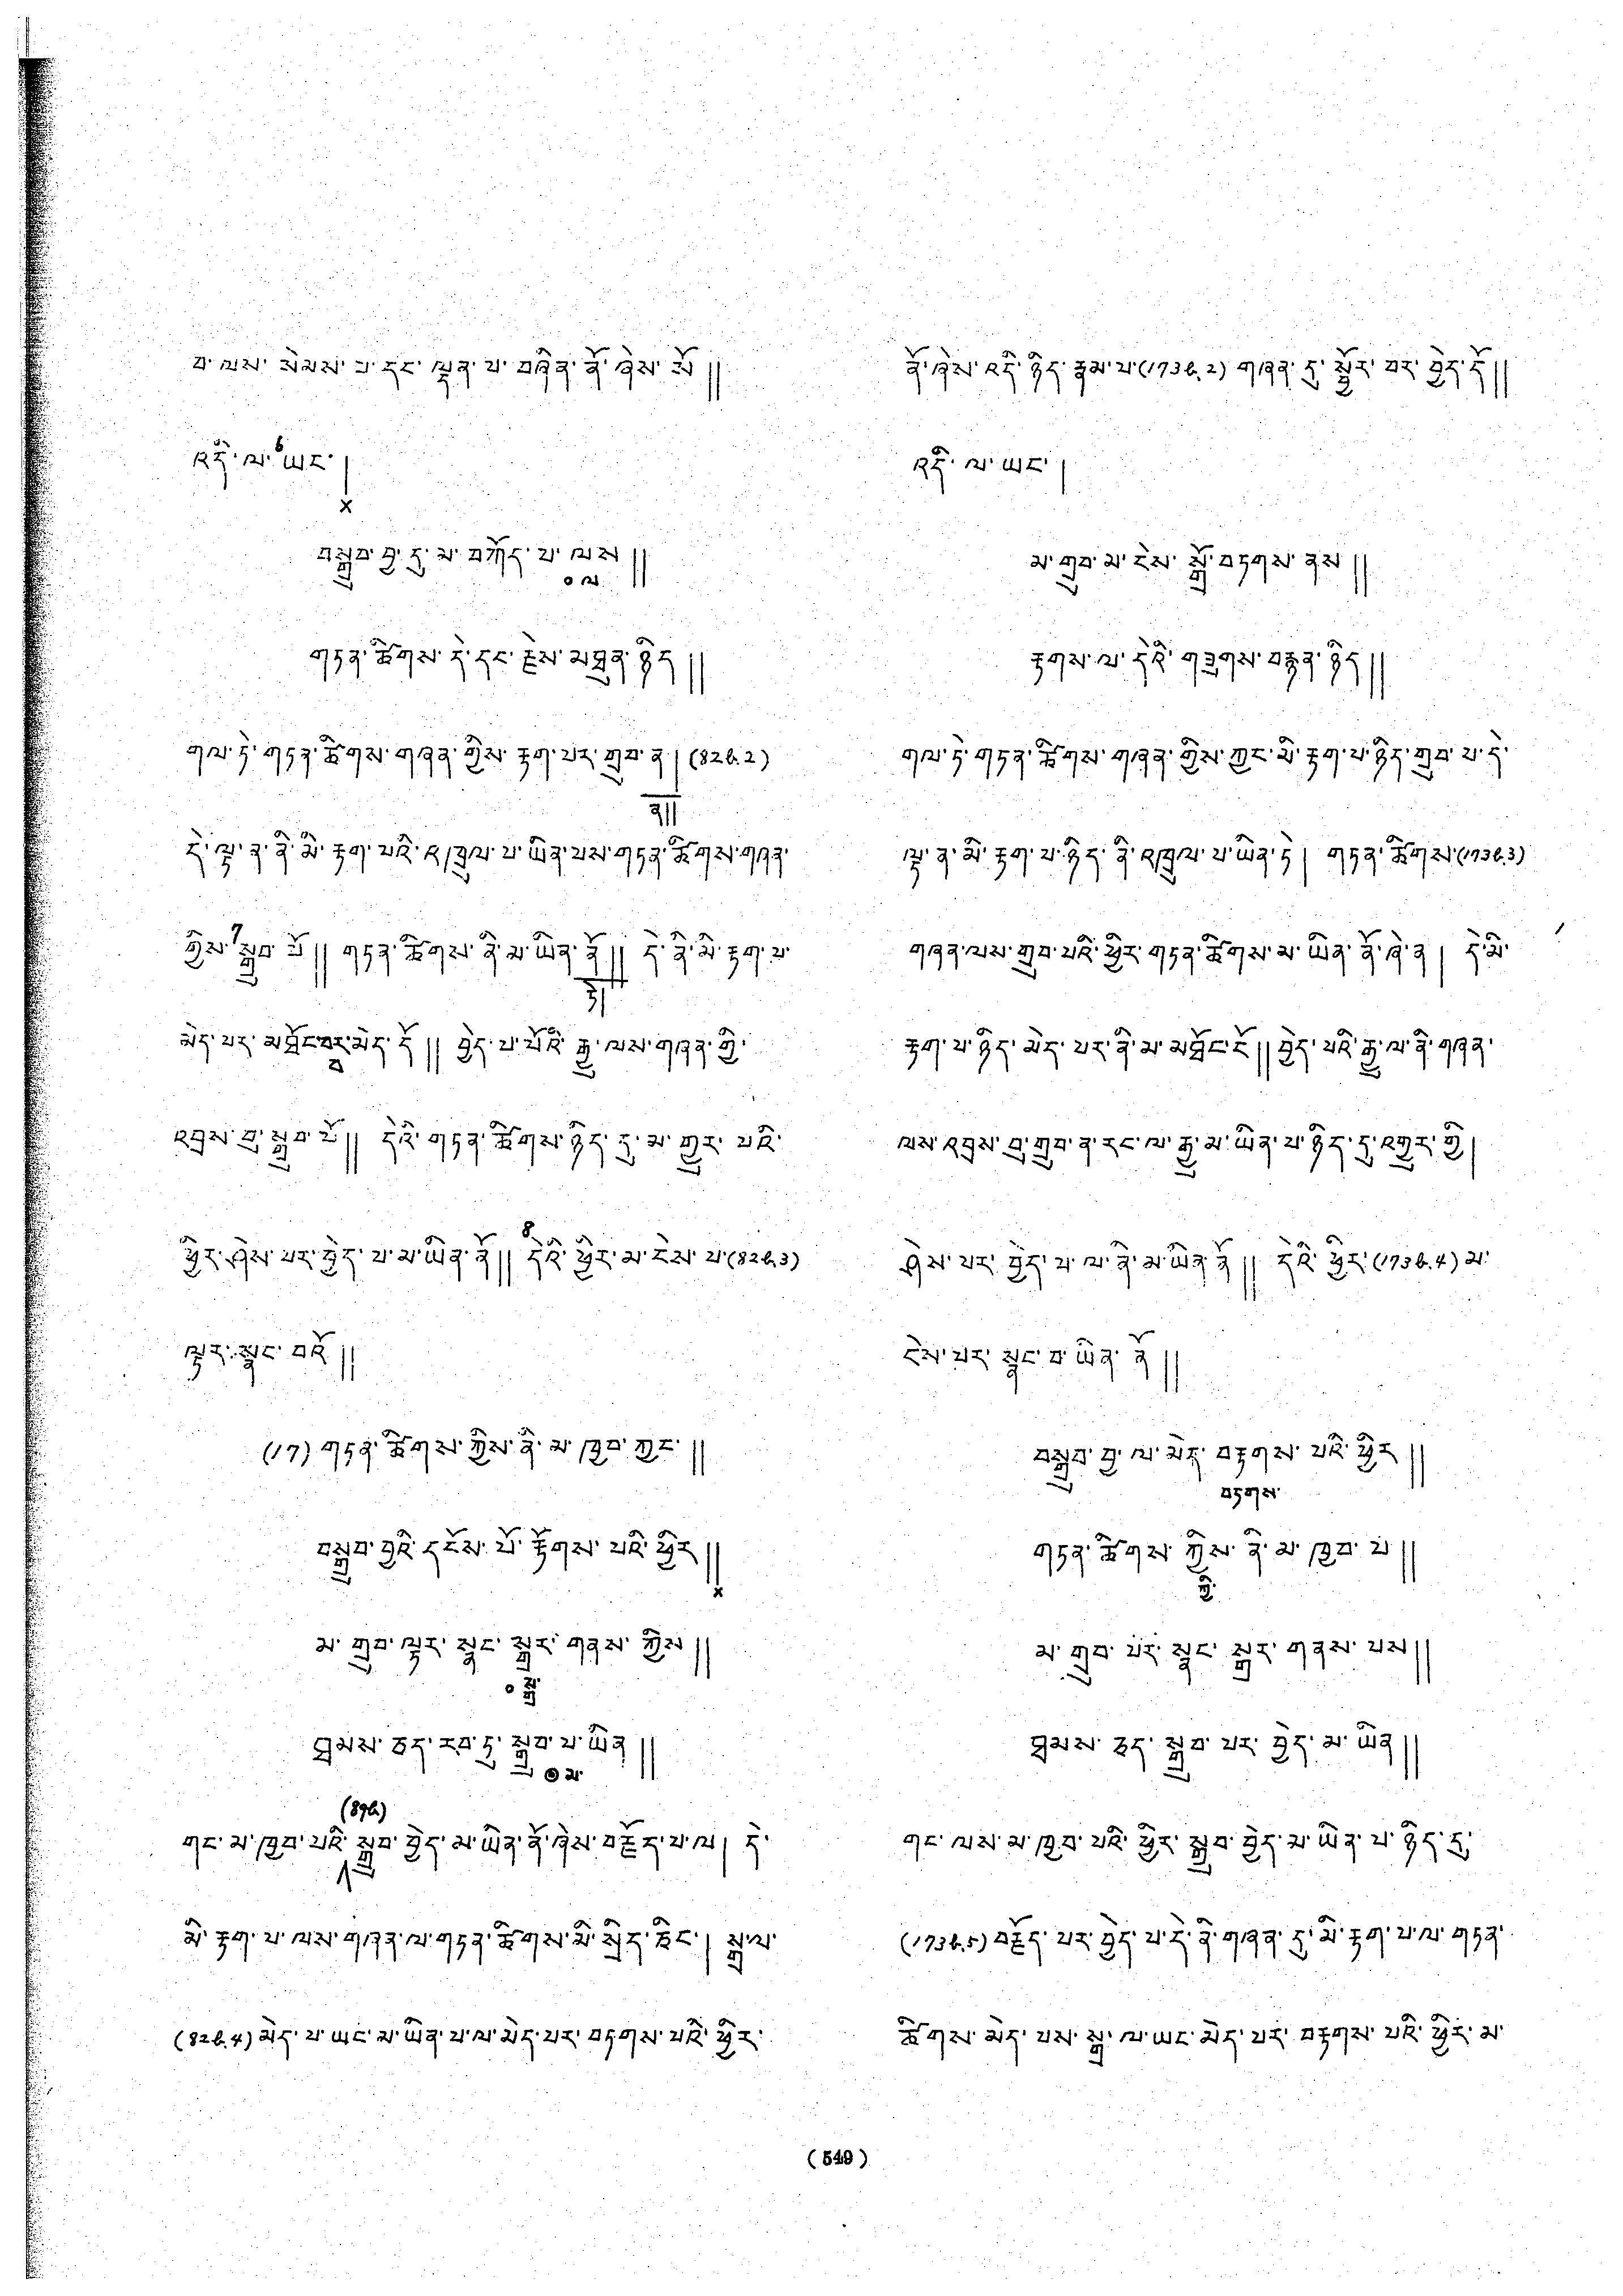 བ་ལས་ སེམས་པ་དང་ ལྡན་ པ་ བཞིན་ ནོ་ ཞེས་ སོ༎
འདི་ ལ་ 6 ཡང་།
×
བསྒྲུབ་ བྱ་ དུ་ མ་ བཀོད་ པ་ ལས༎
० ལ
གཏན་ ཚིགས་ དེ་ དང་ རྗེས་ མཐུན་ ཉིད༎
གལ་ ཏེ་ གཏན་ ཚིགས་ གཞན་ གྱིས་ རྟག་ པར་ གྲུབ་ ན། (82b.2)
ན༎
དེ་ ལྟ་ ན་ ནི་ མི་ རྟག་ པའི་ འཁྲུལ་ པ་ ཡིན་ པས་ གཏན་ ཚིགས་ གཞན་
གྱིས་ 7 སྒྲུབ་ པོ༎ གཏན་ ཚིགས་ ནི་ མ་ ཡིན་ ནོ༎ དེ་ ནི་ མི་ རྟག་ པ་
ཏེ།
མེད་ པར་ མཐོང་བར་མེད་ དོ༎ བྱེད་ པ་ པོའི་ རྒྱུ་ ལས་ གཞན་ གྱི་
བ
འབྲས་ བུ་ སྒྲུབ་ པོ༎ དེའི་ གཏན་ ཚིགས་ ཉིད་ དུ་ མ་ གྱུར་ པའི་
ཕྱིར་ ཤེས་ པར་ བྱེད་ པ་ མ་ ཡིན་ ནོ༎ 8 དེའི་ ཕྱིར་ མ་ ངེས་ པ་ (82b.3)
ལྟར་ སྣང་ བའོ༎
(17) གཏན་ ཚིགས་ ཀྱིས་ ནི་ མ་ ཁྱབ་ ཀྱང་༎
བསྒྲུབ་ བྱའི་ དངོས་ པོ་ རྟོགས་ པའི་ ཕྱིར༎
×
མ་ གྲུབ་ ལྟར་ སྣང་ སྒྲར་ གནས་ ཀྱིས༎
० སྒྲ་
ཐམས་ ཅད་ རབ་ ཏུ་ སྒྲུབ་ པ་ ཡིན༎
० མ་
(89b)
གང་ མ་ ཁྱབ་ པའི་ སྒྲུབ་ བྱེད་ མ་ ཡིན་ ནོ་ ཞེས་ བརྗོད་ པ་ ལ། དེ་
མི་ རྟག་ པ་ ལས་ གཞན་ ལ་ གཏན་ ཚིགས་ མི་ སྲིད་ ཅིང་། སྒྲ་ ལ་
(82b.4) མེད་ པ་ ཡང་ མ་ ཡིན་ པ་ ལ་ མེད་ པར་ བཏགས་ པའི་ ཕྱིར་
ནོ་ ཞེས་ འདི་ ཉིད་ རྣམ་ པ་ (173b.2) གཞན་ དུ་ སྦྱོར་ བར་ བྱེད་ དོ༎
འདི་ ལ་ ཡང་།
མ་ གྲུབ་ མ་ ངེས་ སྒྲོ་ བཏགས་ ནས༎
རྟགས་ ལ་ དེའི་ གཟུགས་ བརྙན་ ཉིད༎
གལ་ ཏེ་ གཏན་ ཚིགས་ གཞན་ གྱིས་ ཀྱང་ མི་ རྟག་ པ་ ཉིད་ གྲུབ་ པ་ དེ་
ལྟ་ ན་ མི་ རྟག་ པ་ ཉིད་ ནི་ འཁྲུལ་ པ་ ཡིན་ ཏེ། གཏན་ ཚིགས་ (173b.3)
གཞན་ ལས་ གྲུབ་ པའི་ ཕྱིར་ གཏན་ ཚིགས་ མ་ ཡིན་ ནོ་ ཞེ་ ན། དེ་ མི་
རྟག་ པ་ ཉིད་ མེད་ པར་ ནི་ མ་ མཐོང་ ངོ༎ བྱེད་ པའི་ རྒྱུ་ ལ་ ནི་ གཞན་
ལས་ འབྲས་ བུ་ གྲུབ་ ན་ རང་ ལ་ རྒྱུ་ མ་ ཡིན་ པ་ ཉིད་ དུ་ འགྱུར་ གྱི།
ཤེས་ པར་ བྱེད་ པ་ ལ་ ནི་ མ་ ཡིན་ ནོ༎ དེའི་ ཕྱིར་ (173b.4) མ་
ངེས་ པར་ སྣང་ བ་ ཡིན་ ནོ༎
བསྒྲུབ་ བྱ་ ལ་ མེད་ བརྟགས་ པའི་ ཕྱིར༎
བཏགས་
གཏན་ ཚིགས་ ཀྱིས་ ནི་ མ་ ཁྱབ་ པ༎
ཀྱི་
མ་ གྲུབ་ པར་ སྣང་ སྒྲར་ གནས་ པས༎
ཐམས་ ཅད་ སྒྲུབ་ པར་ བྱེད་ མ་ ཡིན༎
གང་ ལས་ མ་ ཁྱབ་ པའི་ ཕྱིར་ སྒྲུབ་ བྱེད་ མ་ ཡིན་ པ་ ཉིད་ དུ་
(173b.5) བརྗོད་ པར་ བྱེད་ པ་ དེ་ ནི་ གཞན་ དུ་ མི་ རྟག་ པ་ ལ་ གཏན་
ཚིགས་ མེད་ པས་ སྒྲ་ ལ་ ཡང་ མེད་ པར་ བརྟགས་ པའི་ ཕྱིར་ མ་
(549)